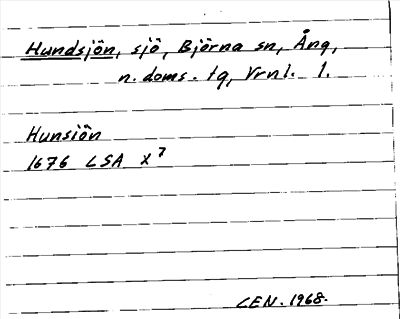 Hundsjön, sjö, Björna sn, Ång,
n. doms. tg, Vrnl. l.
Hunsiön
1676 LSA X 7
CEN. 1968.